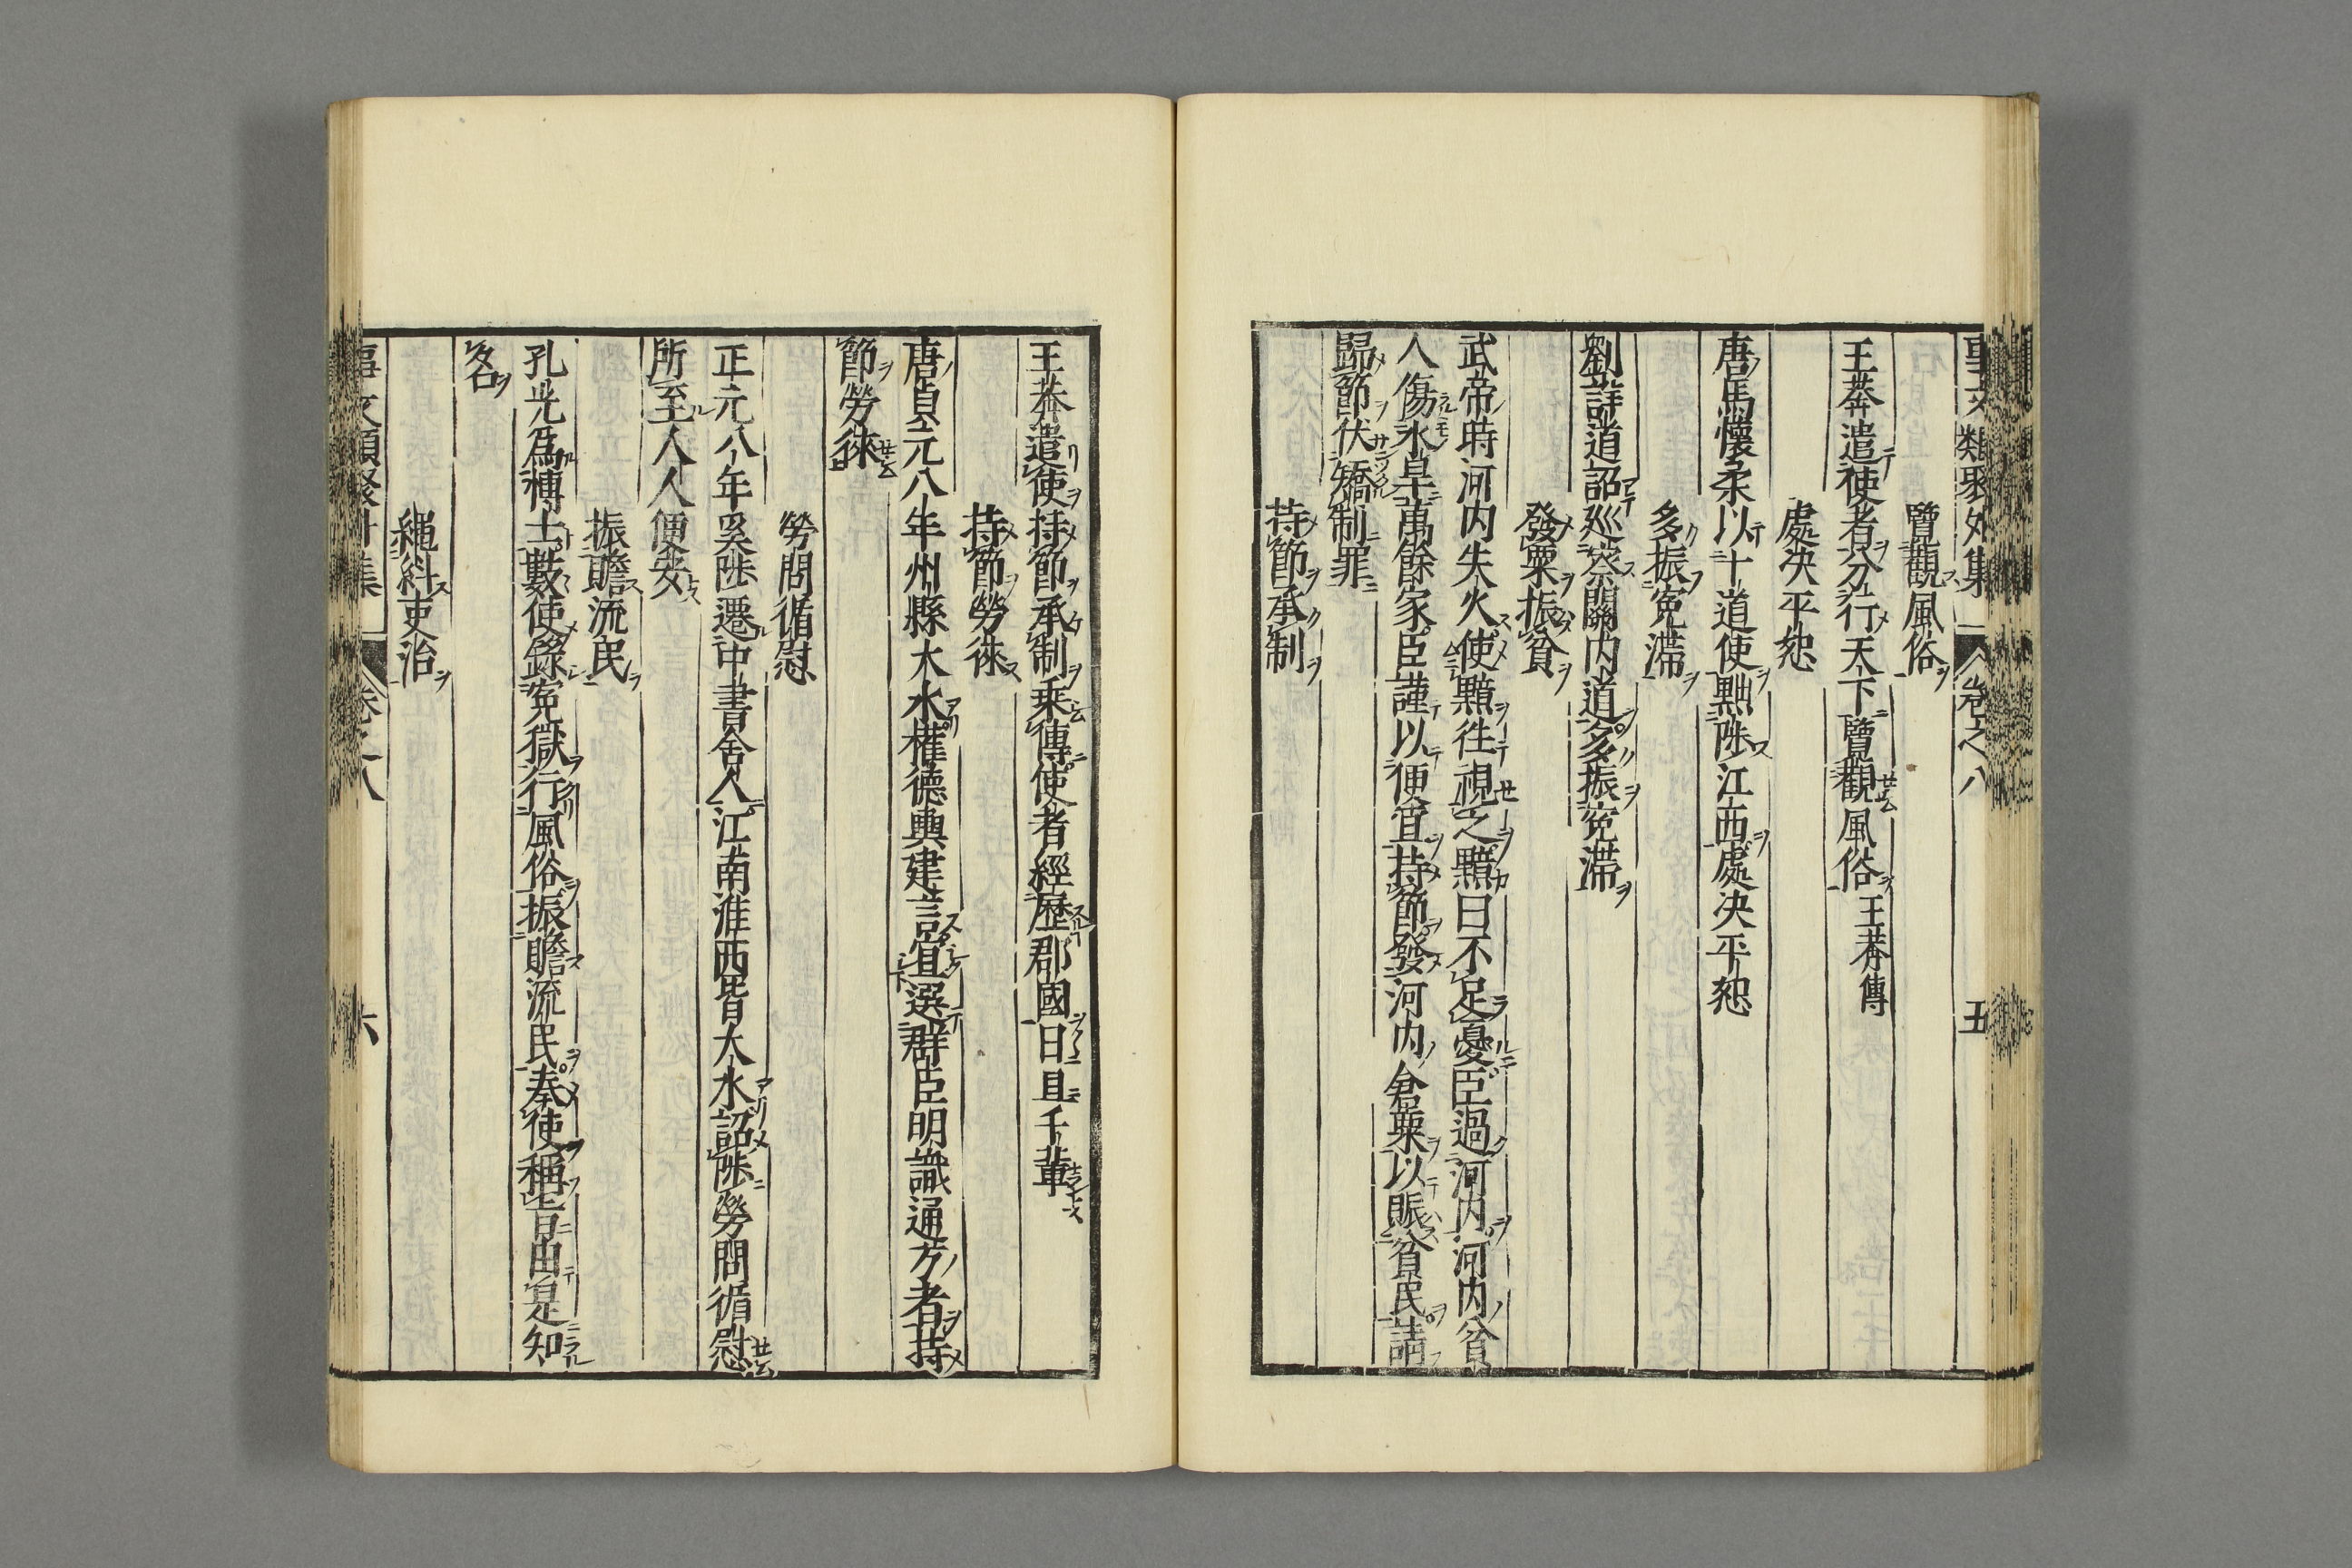 事文類聚外集 卷之八 五
覽觀風俗
王莽遣使者分行天下覽觀風俗王莽傳
處決平恕
唐馬懷柔以十道使黜陟江西處决平恕
多振寃滯
劉詳道詔廵察關内道多振寃滯
發粟振貧
武帝時河内失火使黯徃視之黯曰不足憂臣過河内河内貧
人傷水旱萬餘家臣謹以便宜持節發河内倉粟以賑貧民請
歸節伏矯制罪
持節承制
王莽遣使持節承制乗傳使者經歷郡國日且千輩
持節勞徠
唐貞元八年州縣大水權德輿建言宜選群臣明識通方者持
節勞徠
勞問循慰
正元八年奚陟遷中書舎人江南淮西皆大水詔陟勞問循慰
所至人人便安
振贍流民
孔光爲博士數使錄寃獄行風俗振贍流民奉使稱旨由是知
名
繩糾吏治
事文類聚外集 卷之八 六